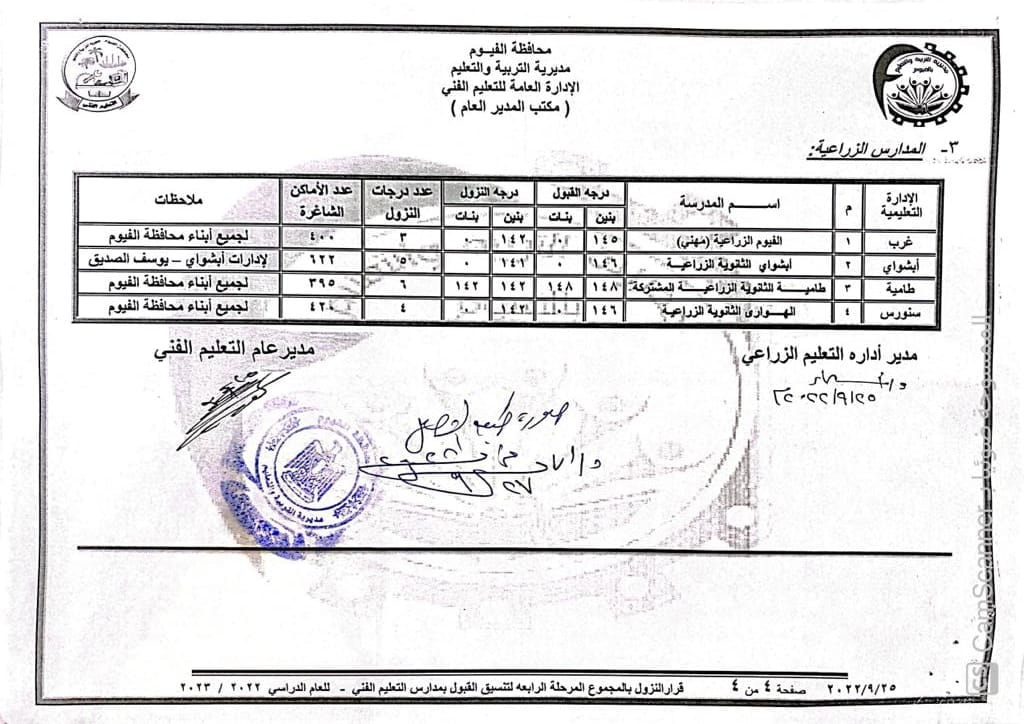 محافظة الفيوم
مديرية التربية والتعليم
الإدارة العامة للتعليم الفني
( مكتب المدير العام )
٣- المدارس الزراعية:
الإدارة التعليمية | م | اسم المدرسة | درجه القبول | درجه النزول | عدد درجات النزول | عدد الأماكن الشاغرة | ملاحظات
بنين | بنات | بنين | بنات
غرب | ١ | الفيوم الزراعية (مهني) | ١٤٥ | ٠ | ١٤٢ | ٠ | ٣ | ٤٠٠ | لجميع أبناء محافظة الفيوم
أبشواي | ٢ | أبشواي الثانوية الزراعية | ١٤٦ | ٠ | ١٤١ | ٠ | ٥ | ٦٢٢ | لإدارات أبشواي – يوسف الصديق
طامية | ٣ | طامية الثانوية الزراعية المشتركة | ١٤٨ | ١٤٨ | ١٤٢ | ١٤٢ | ٦ | ٣٩٥ | لجميع أبناء محافظة الفيوم
سنورس | ٤ | الهوارى الثانوية الزراعية | ١٤٦ | ٠ | ١٤٢ | ٠ | ٤ | ٤٢٠ | لجميع أبناء محافظة الفيوم
مدير أداره التعليم الزراعي
مدير عام التعليم الفني
٢٠٢٢/٩/٢٥
صورة طبق الأصل
مديرية التربية والتعليم
٢٠٢٢/٩/٢٥ صفحة ٤ من ٤ قرار النزول بالمجموع المرحلة الرابعه لتنسيق القبول بمدارس التعليم الفني - للعام الدراسي ٢٠٢٢ / ٢٠٢٣
CS CamScanner